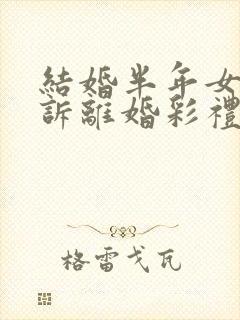 結婚半年女
訴離婚彩禮
格雷戈瓦